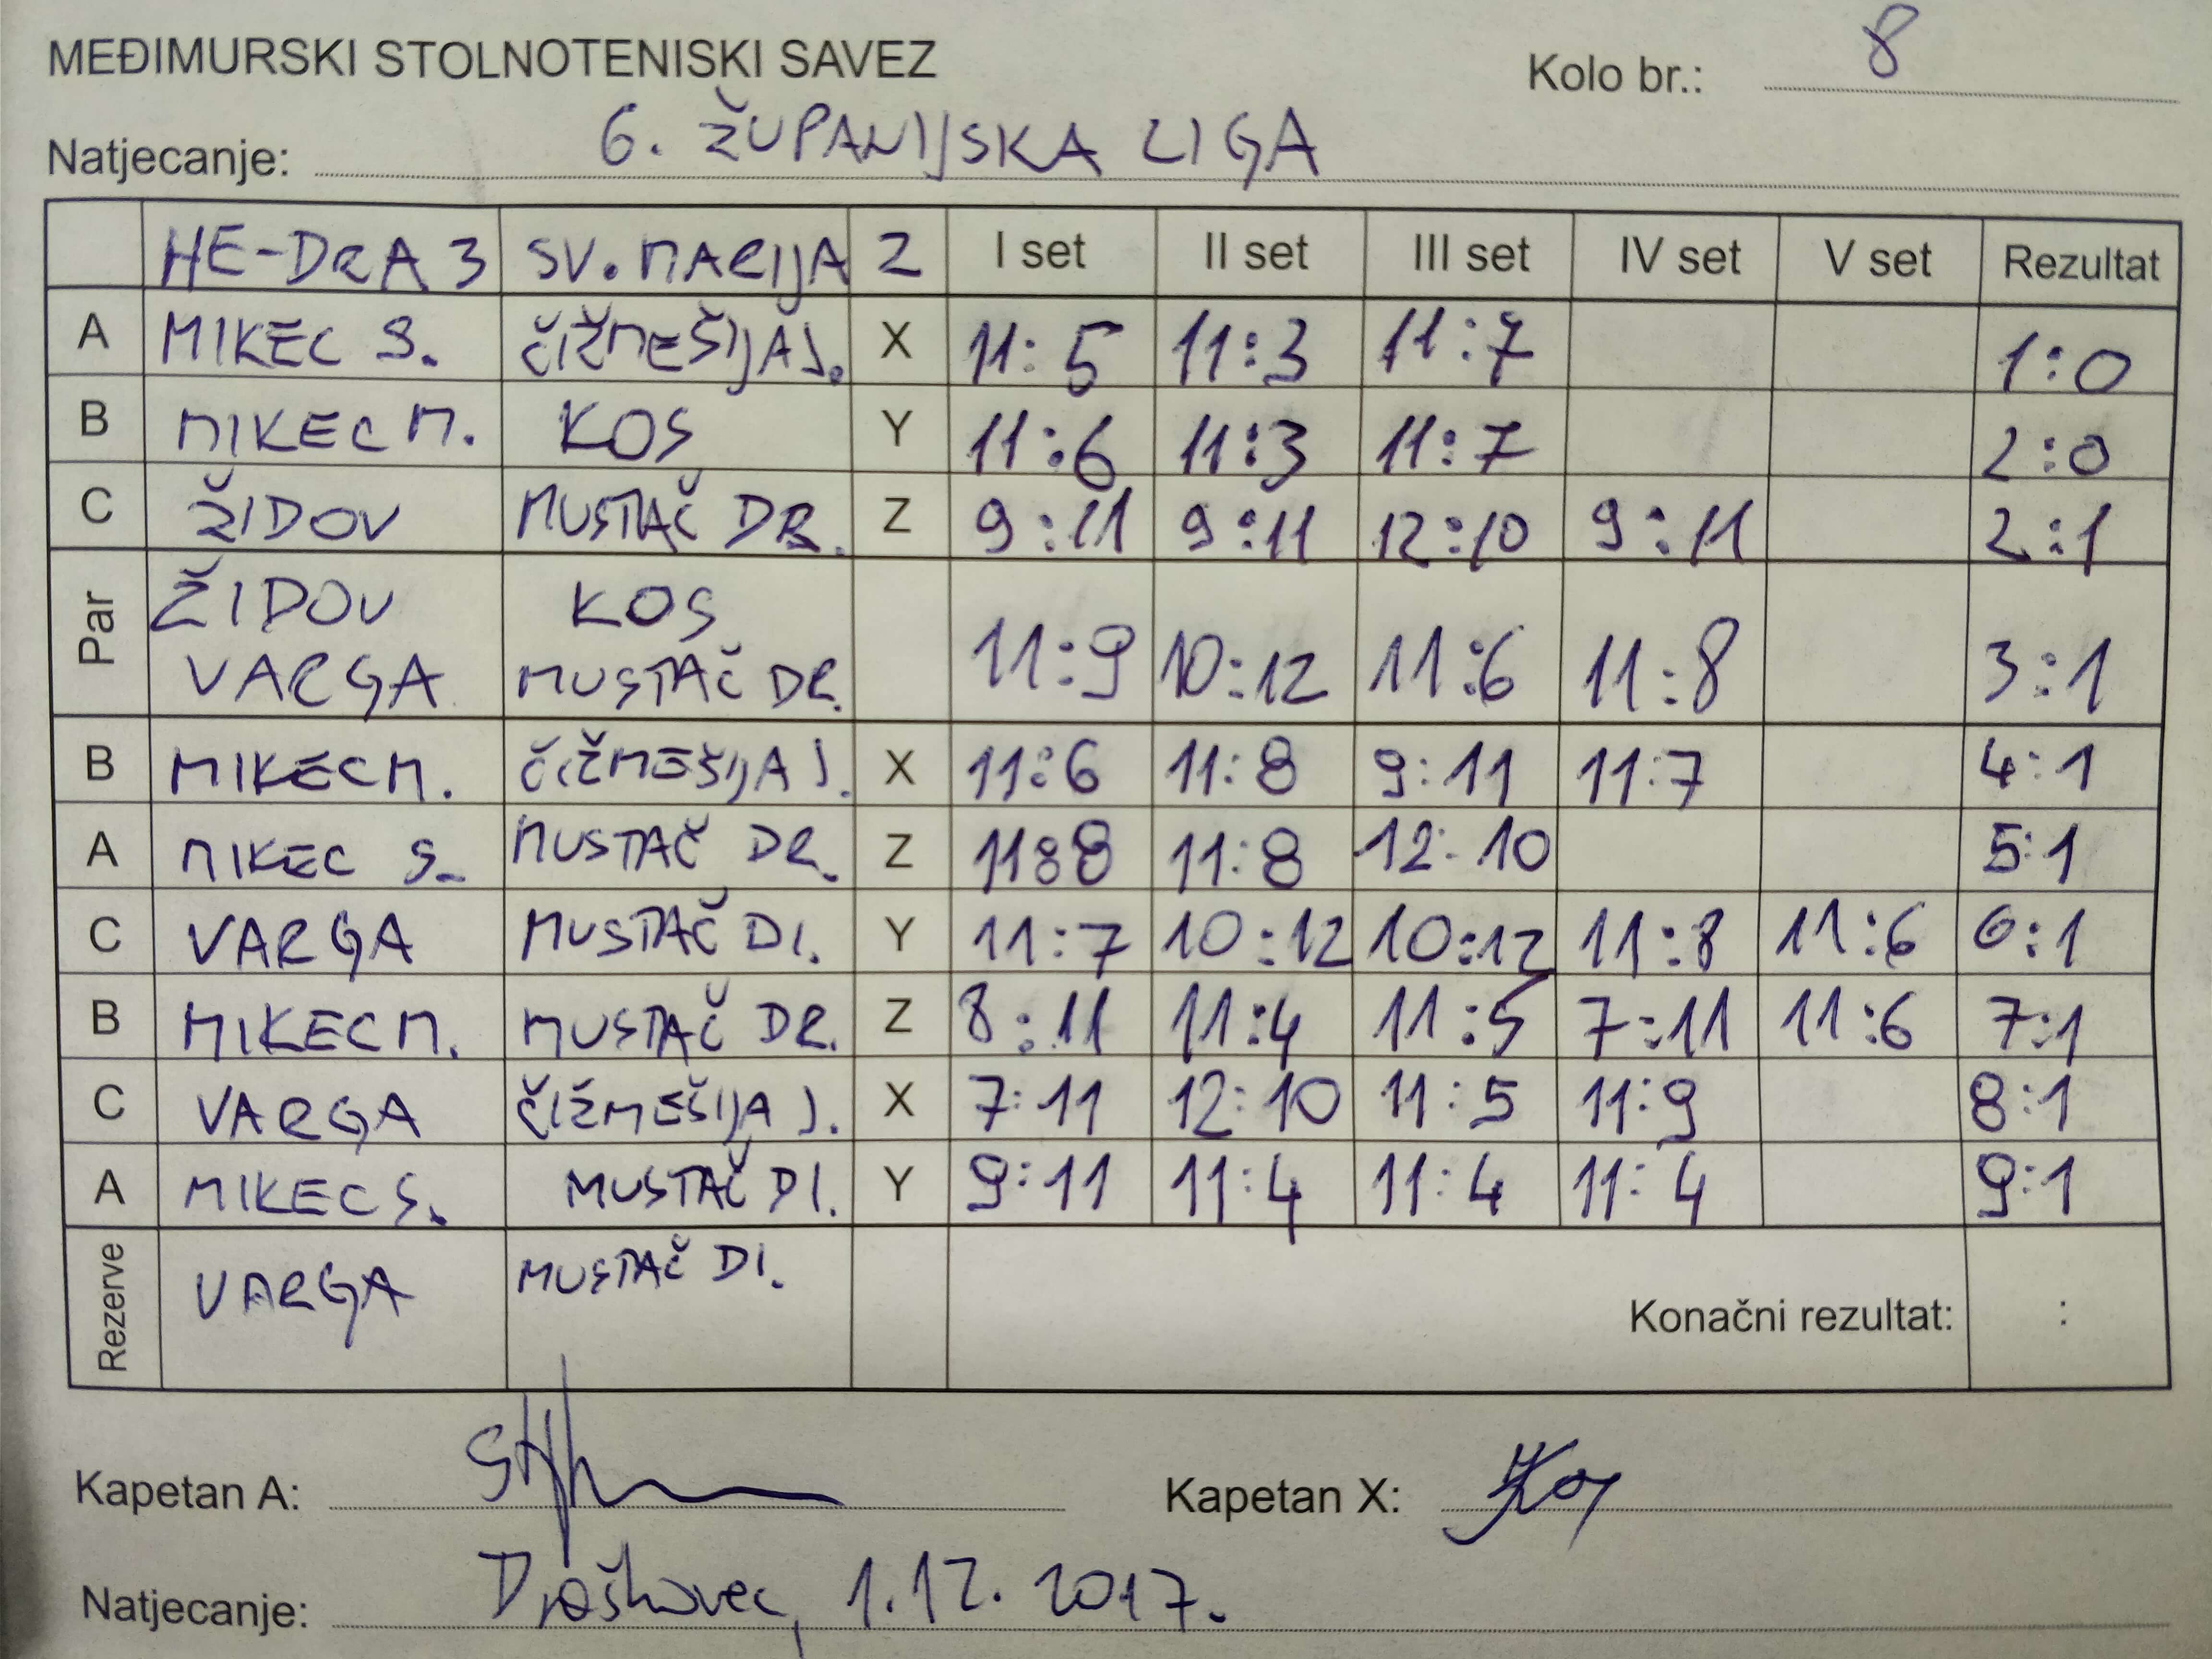 MEĐIMURSKI STOLNOTENISKI SAVEZ Kolo br.: 8
Natjecanje: 6. ŽUPANIJSKA LIGA
HE-DRA 3 SV. MARIJA 2 I set II set III set IV set V set Rezultat
A MIKEC S. ČIŽMEŠIJA J. X 11:5 11:3 11:7 1:0
B MIKEC M. KOS Y 11:6 11:3 11:7 2:0
C ŽIDOV MUSTAČ DR. Z 9:11 9:11 12:10 9:11 2:1
Par ŽIDOV KOS
VARGA MUSTAČ DR. 11:9 10:12 11:6 11:8 3:1
B MIKEC M. ČIŽMEŠIJA J. X 11:6 11:8 9:11 11:7 4:1
A MIKEC S. MUSTAČ DR. Z 11:8 11:8 12:10 5:1
C VARGA MUSTAČ DI. Y 11:7 10:12 10:12 11:8 11:6 6:1
B MIKEC M. MUSTAČ DR. Z 8:11 11:4 11:5 7:11 11:6 7:1
C VARGA ČIŽMEŠIJA J. X 7:11 12:10 11:5 11:9 8:1
A MIKEC S. MUSTAČ DI. Y 9:11 11:4 11:4 11:4 9:1
Rezerve VARGA MUSTAČ DI.
Konačni rezultat: :
Kapetan A: Kapetan X: Kos
Natjecanje: Draškovec, 1.12.2017.